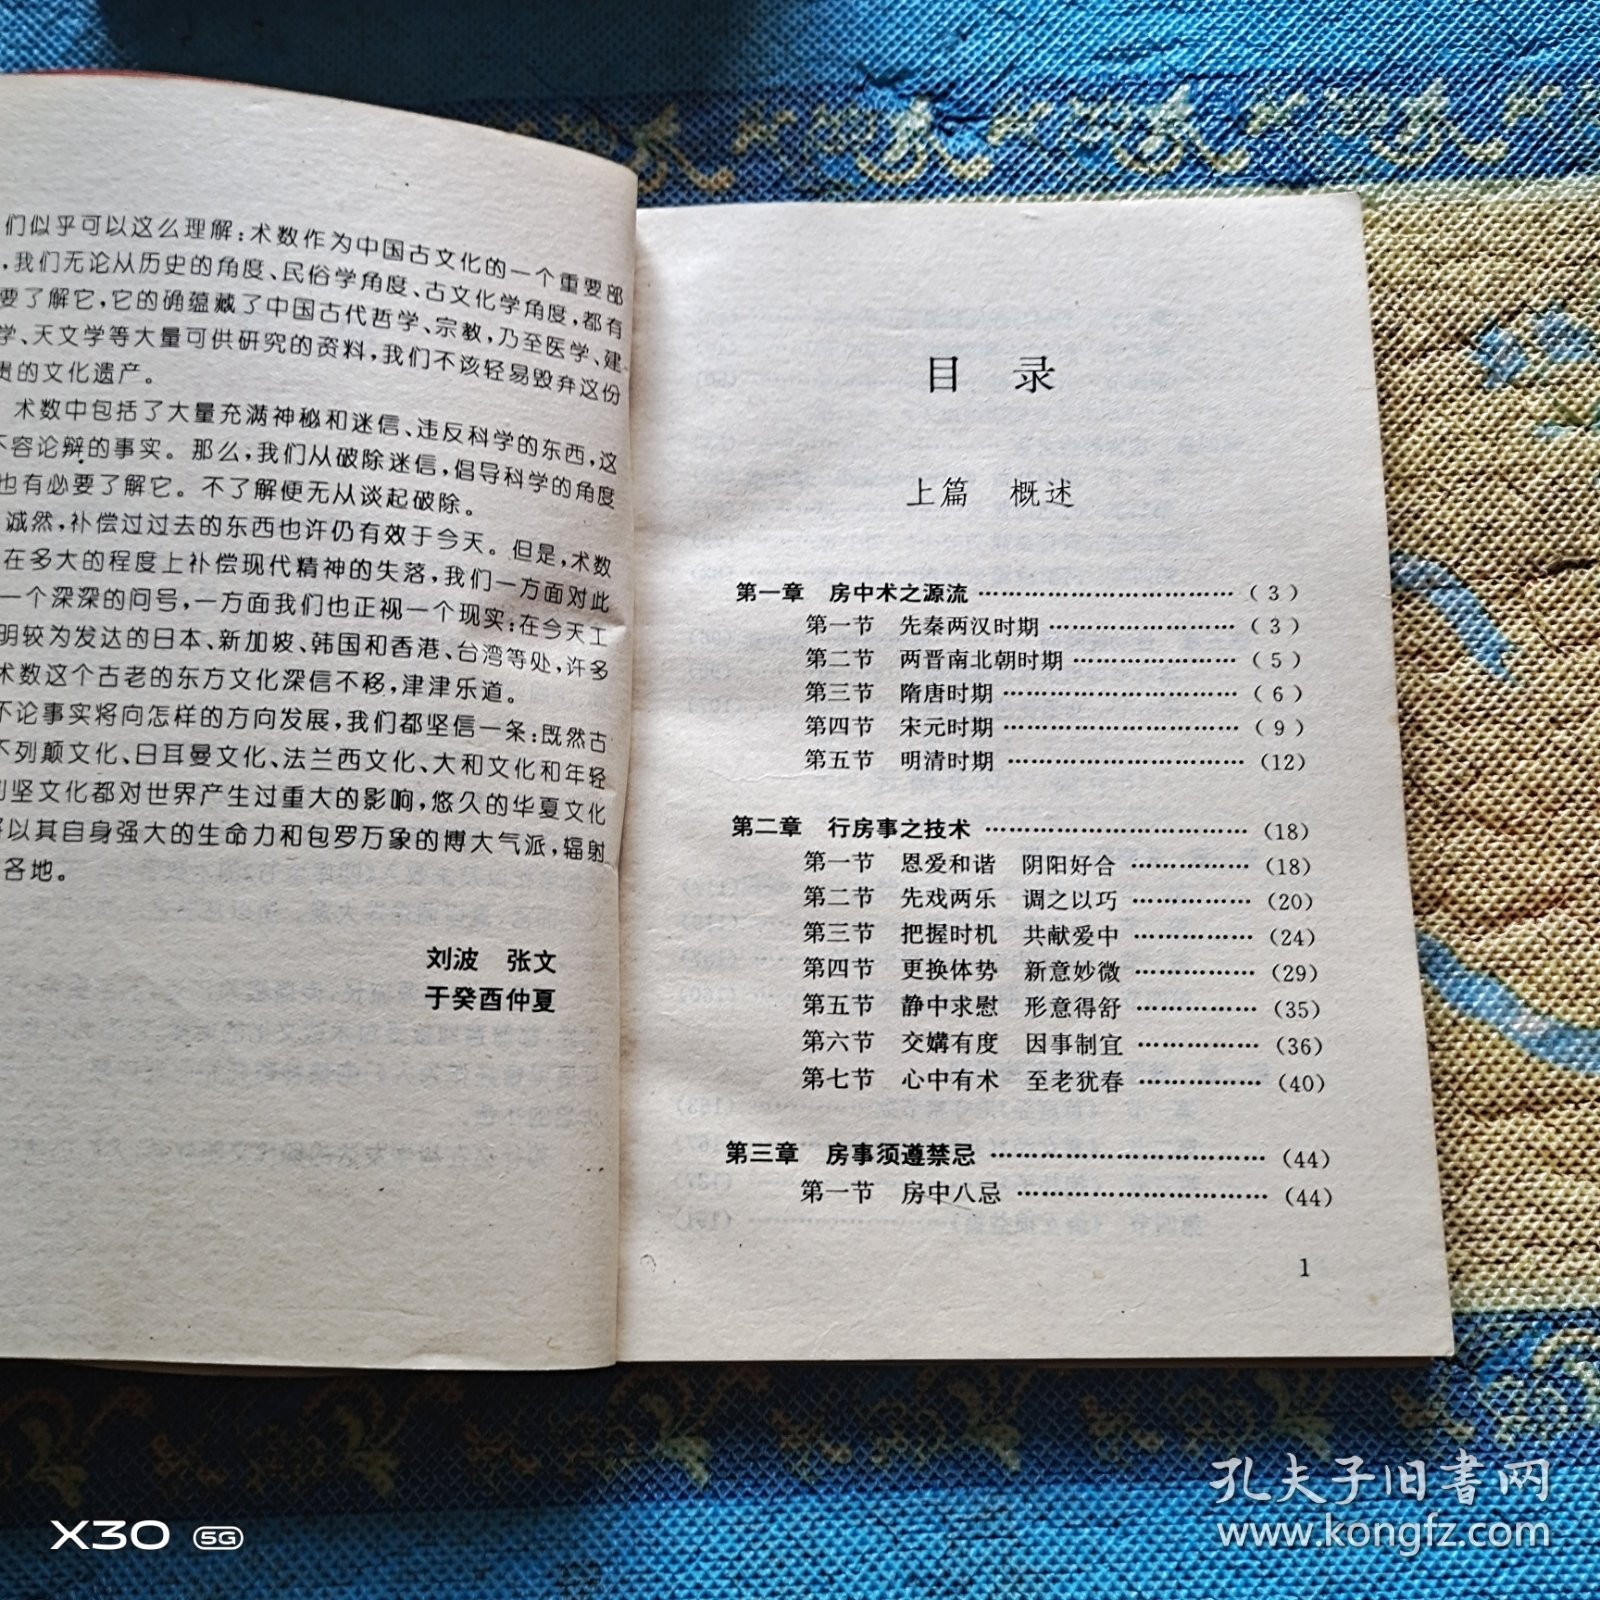 们似乎可以这么理解:术数作为中国古文化的一个重要部
,我们无论从历史的角度、民俗学角度、古文化学角度,都有
要了解它,它的确蕴藏了中国古代哲学、宗教,乃至医学、建
学、天文学等大量可供研究的资料,我们不该轻易毁弃这份
贵的文化遗产。
术数中包括了大量充满神秘和迷信、违反科学的东西,这
不容论辩的事实。那么,我们从破除迷信,倡导科学的角度
也有必要了解它。不了解便无从谈起破除。
诚然,补偿过过去的东西也许仍有效于今天。但是,术数
在多大的程度上补偿现代精神的失落,我们一方面对此
一个深深的问号,一方面我们也正视一个现实:在今天工
明较为发达的日本、新加坡、韩国和香港、台湾等处,许多
术数这个古老的东方文化深信不移,津津乐道。
不论事实将向怎样的方向发展,我们都坚信一条:既然古
不列颠文化、日耳曼文化、法兰西文化、大和文化和年轻
利坚文化都对世界产生过重大的影响,悠久的华夏文化
将以其自身强大的生命力和包罗万象的博大气派,辐射
各地。
刘波 张文
于癸酉仲夏
目 录
上篇 概述
第一章 房中术之源流 ……………………………(3)
第一节 先秦两汉时期 ……………………(3)
第二节 两晋南北朝时期 …………………(5)
第三节 隋唐时期 …………………………(6)
第四节 宋元时期 …………………………(9)
第五节 明清时期 …………………………(12)
第二章 行房事之技术 ……………………………(18)
第一节 恩爱和谐 阴阳好合 ……………(18)
第二节 先戏两乐 调之以巧 ……………(20)
第三节 把握时机 共献爱中 ……………(24)
第四节 更换体势 新意妙微 ……………(29)
第五节 静中求慰 形意得舒 ……………(35)
第六节 交媾有度 因事制宜 ……………(36)
第七节 心中有术 至老犹春 ……………(40)
第三章 房事须遵禁忌 ……………………………(44)
第一节 房中八忌 …………………………(44)
1
孔夫子旧书网
www.kongfz.com
X30 5G